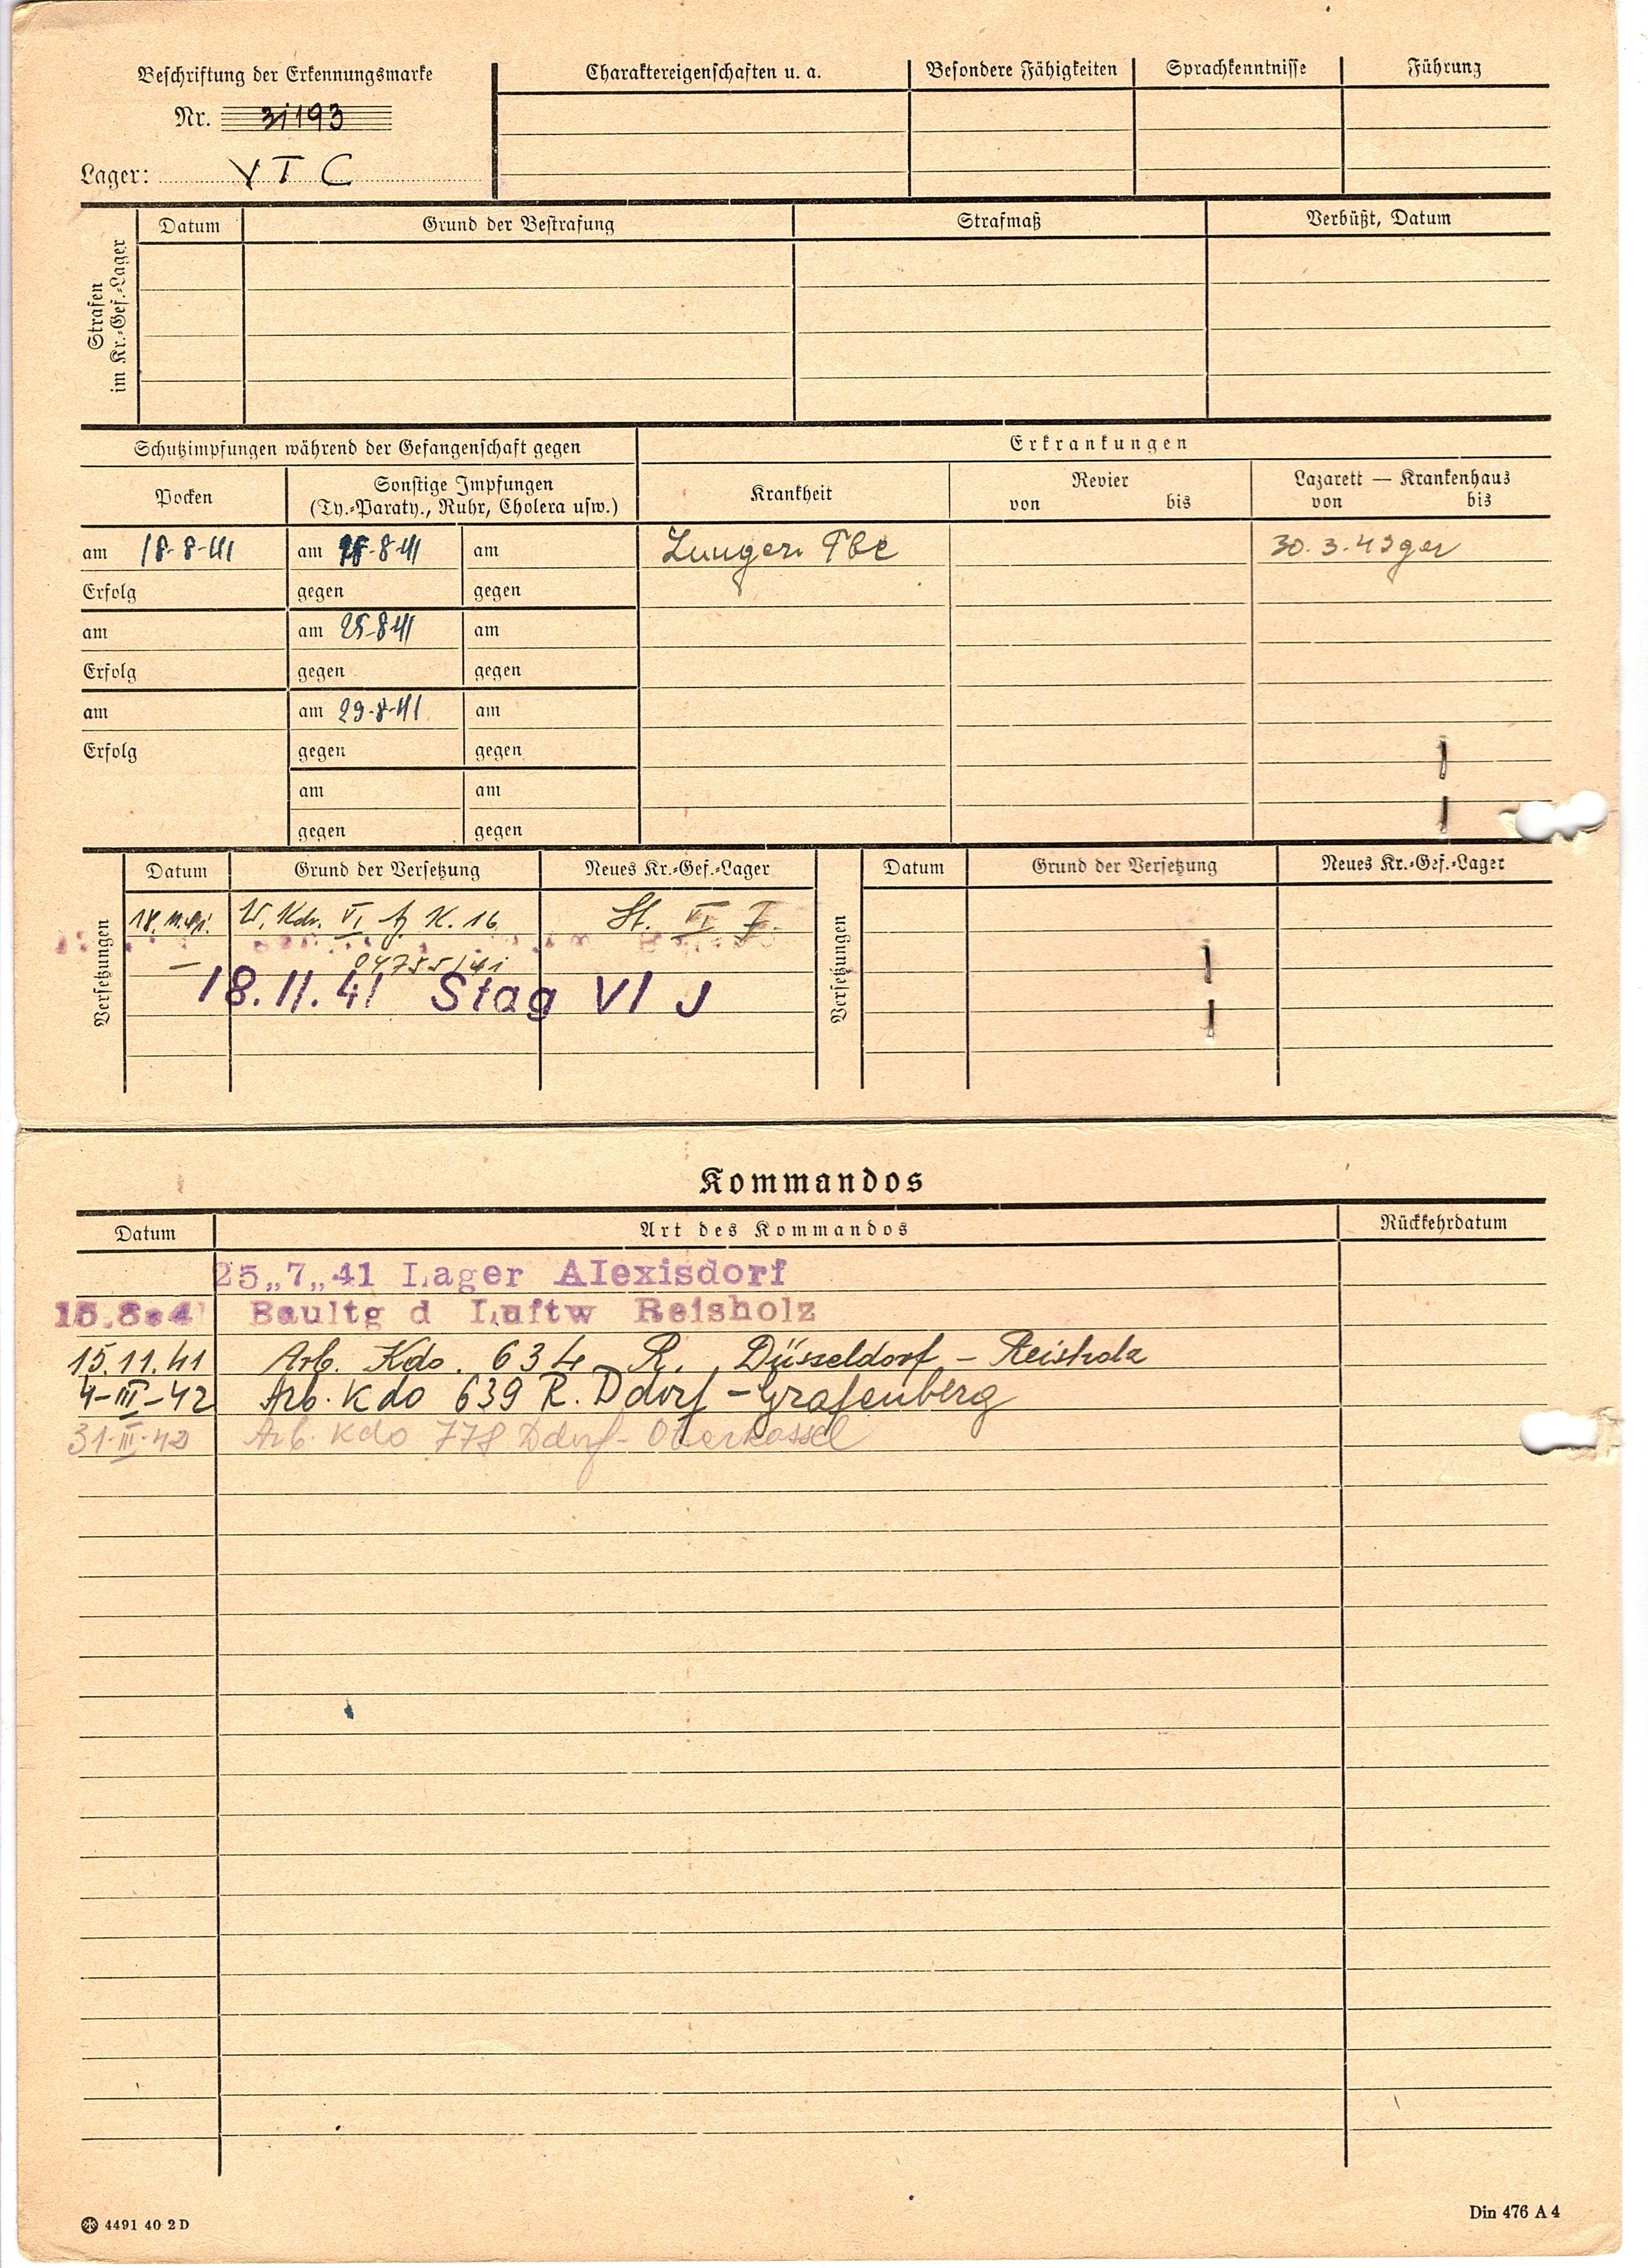 Beschriftung der Erkennungsmarke
Nr. 31193
Lager: VI C
Charaktereigenschaften u. a.
Besondere Fähigkeiten
Sprachkenntnisse
Führung
Strafen
im Kr.-Gef.-Lager
Datum
Grund der Bestrafung
Strafmaß
Verbüßt, Datum
Schutzimpfungen während der Gefangenschaft gegen
Erkrankungen
Pocken
Sonstige Impfungen
(Ty.-Paraty., Ruhr, Cholera usw.)
Krankheit
Revier
von bis
Lazarett — Krankenhaus
von bis
am 18-8-41 am 18-8-41 am Lungen Tbc 30.3.42
Erfolg gegen gegen
am am 25-8-41 am
Erfolg gegen gegen
am am 29-8-41 am
Erfolg gegen gegen
am am
gegen gegen
Versetzungen
Datum Grund der Versetzung Neues Kr.-Gef.-Lager
W. Kdr. VI K. 16 St. VI J.
— 04785/41
18.11.41 Stag VI J
Versetzungen
Datum Grund der Versetzung Neues Kr.-Gef.-Lager
Kommandos
Datum Art des Kommandos Rückkehrdatum
25„7„41 Lager Alexisdorf
15.8.41 Baultg d Luftw Reisholz
15.11.41 Arb. Kdo. 634 R. Düsseldorf - Reisholz
4-III-42 Arb. Kdo 639 R. Ddorf - Grafenberg
31-III-42 Arb. Kdo 778 Ddorf - Oberkassel
4491 40 2 D
Din 476 A 4